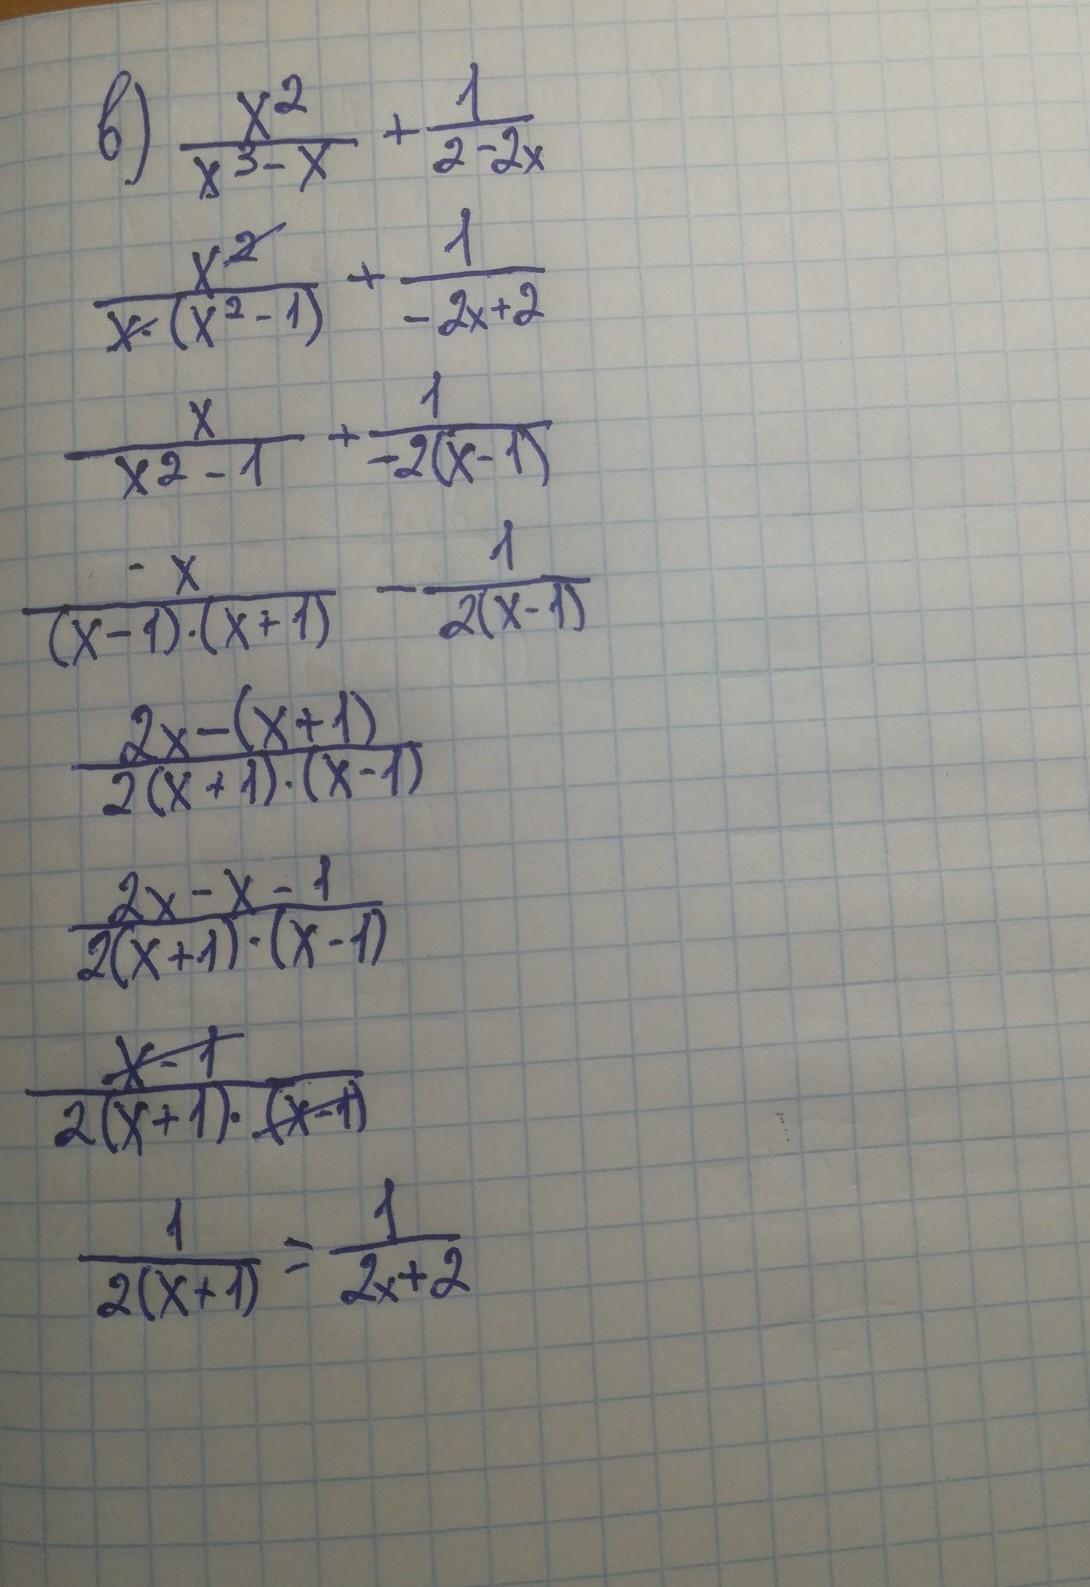 в) x²/(x³-x) + 1/(2-2x)
x²/(x·(x²-1)) + 1/(-2x+2)
x/(x2-1) + 1/(-2(x-1))
-x/((x-1)·(x+1)) - 1/(2(x-1))
(2x-(x+1))/(2(x+1)·(x-1))
(2x-x-1)/(2(x+1)·(x-1))
(x-1)/(2(x+1)·(x-1))
1/(2(x+1)) = 1/(2x+2)